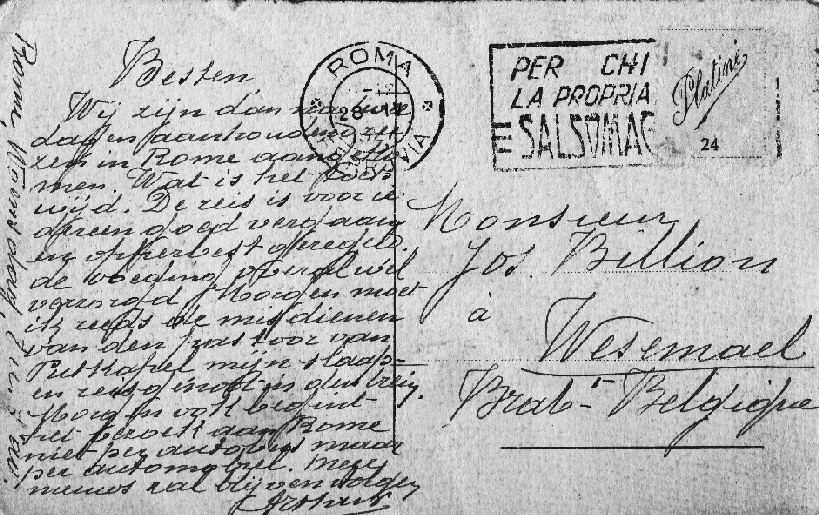 Besten
Wij zijn dan na
dagen aanhoudend rei
zen in Rome aangeko
men. Wat is het
wijd. De reis is voor ie
dereen goed vergaan
en opperbest geregeld.
de voeding
verzorgd Morgen moet
ik reeds de mis dienen
van den pastoor van
mijn slaap-
en reisgenoot in den trein.
Morgen vott begint
het bezoek aan Rome
niet per autobus maar
per automobiel. Meer
nieuws zal blijven volgen
Arthur
Rome,
ROMA
FERROVIA
PER CHI
LA PROPRIA
SALSOMAG
Platini
24
Monsieur
Jos. Billion
à
Wesemael
Brab- Belgique